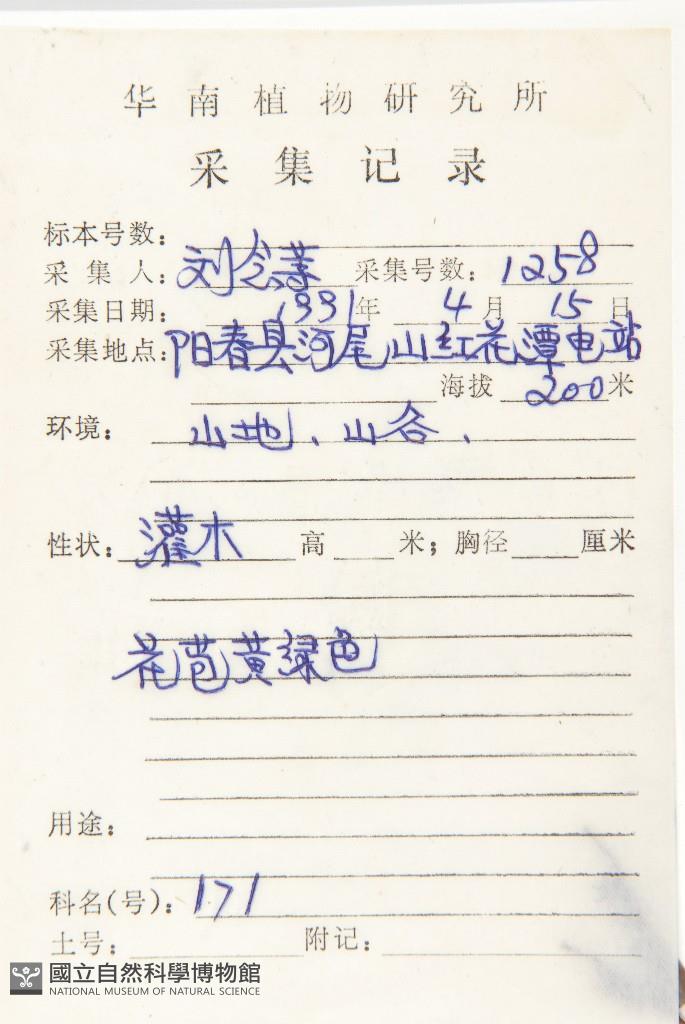 华南植物研究所
采集记录
标本号数：
采集人：刘念 采集号数：1258
采集日期：1991年4月15日
采集地点：阳春县河尾山红花潭电站
海拔200米
环境：山地、山谷、
性状：灌木 高 米；胸径 厘米
花苞黄绿色
用途：
科名(号)：171
土号： 附记：
國立自然科學博物館
NATIONAL MUSEUM OF NATURAL SCIENCE